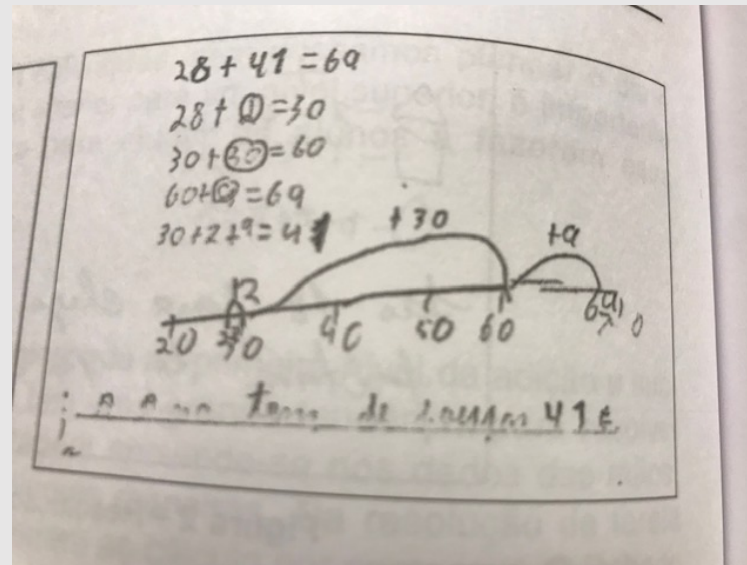 28 + 41 = 69
28 + 2 = 30
30 + 30 = 60
60 + 9 = 69
30 + 2 + 9 = 41
+30
+9
2
20 30 40 50 60 69 70
A Ana tem de poupar 41€